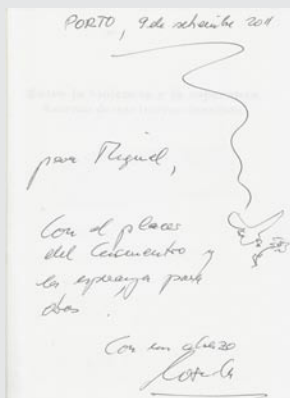 PORTO, 9 de setembre 2011
para Miguel,
Con el placer
del encuentro y
la esperanza para
otros.
Con un abrazo